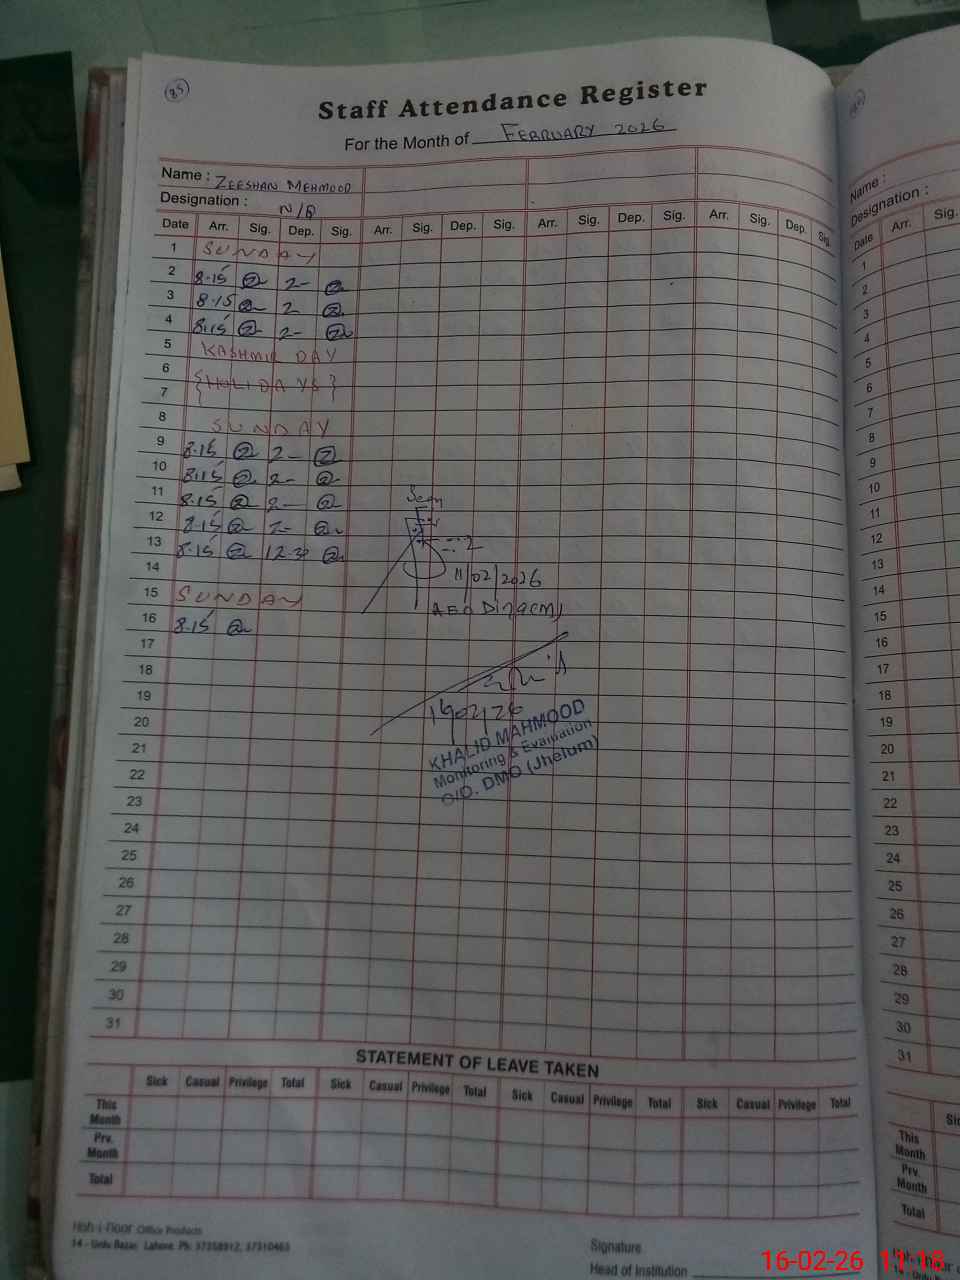 85
Staff Attendance Register
For the Month of FEBRUARY 2026
Name : ZEESHAN MEHMOOD
Designation : N/Q
Date Arr. Sig. Dep. Sig. Arr. Sig. Dep. Sig. Arr. Sig. Dep. Sig. Arr. Sig. Dep. Sig.
1 SUNDAY
2 8.15 2-
3 8.15 2
4 8.15 2-
5 KASHMIR DAY
6 {HOLIDAYS}
7
8 SUNDAY
9 8.15 2-
10 8.15 2-
11 8.15 2-
12 8.15 2-
13 8.15 12.30
14
15 SUNDAY
16 8.15
17
18
19
20
21
22
23
24
25
26
27
28
29
30
31
Seen
11/02/2026
AEO Dina (M)
16/02/26
KHALID MAHMOOD
Monitoring & Evaluation
O/O. DMO (Jhelum)
STATEMENT OF LEAVE TAKEN
Sick Casual Privilege Total Sick Casual Privilege Total Sick Casual Privilege Total Sick Casual Privilege Total
This Month
Prv. Month
Total
Office Products
14 - Urdu Bazar, Lahore. Ph: 37358912, 37310463
Signature
Head of Institution
Name :
Designation :
Date Arr. Sig.
1
2
3
4
5
6
7
8
9
10
11
12
13
14
15
16
17
18
19
20
21
22
23
24
25
26
27
28
29
30
31
This Month
Prv. Month
Total
16-02-26 11:18